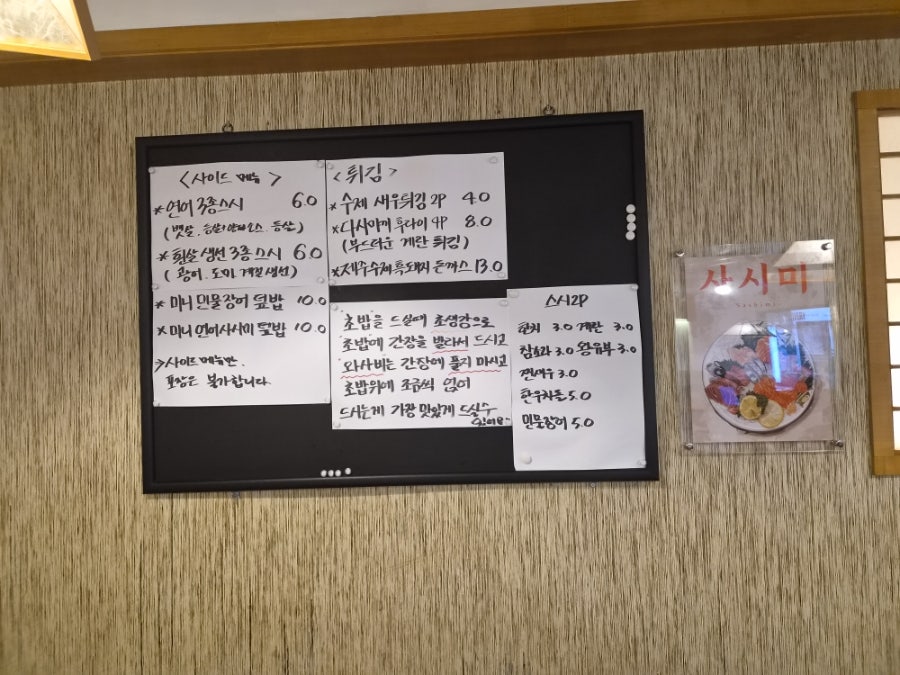 <사이드 메뉴>
*연어 3종스시 6.0
(뱃살, 등살)
*흰살 생선 3종 스시 6.0
(광어, 도미, 계절생선)
*미니 민물장어 덮밥 10.0
*미니 연어사시미 덮밥 10.0
>사이드 메뉴만,
포장은 불가합니다.
<튀김>
*수제 새우튀김 2P 4.0
*다시마끼 후다이 4P 8.0
(부드러운 계란 튀김)
*제주수제흑돼지 돈까스 13.0
초밥을 드실때 초생강으로
초밥에 간장을 발라서 드시고
와사비는 간장에 풀지 마시고
초밥위에 조금씩 얹어
드시는게 가장 맛있게 드실수
있어요~
스시2P
한치 3.0 계란 3.0
참소라 3.0 왕유부 3.0
찐새우 3.0
한우차돌 5.0
민물장어 5.0
사시미
Sashimi